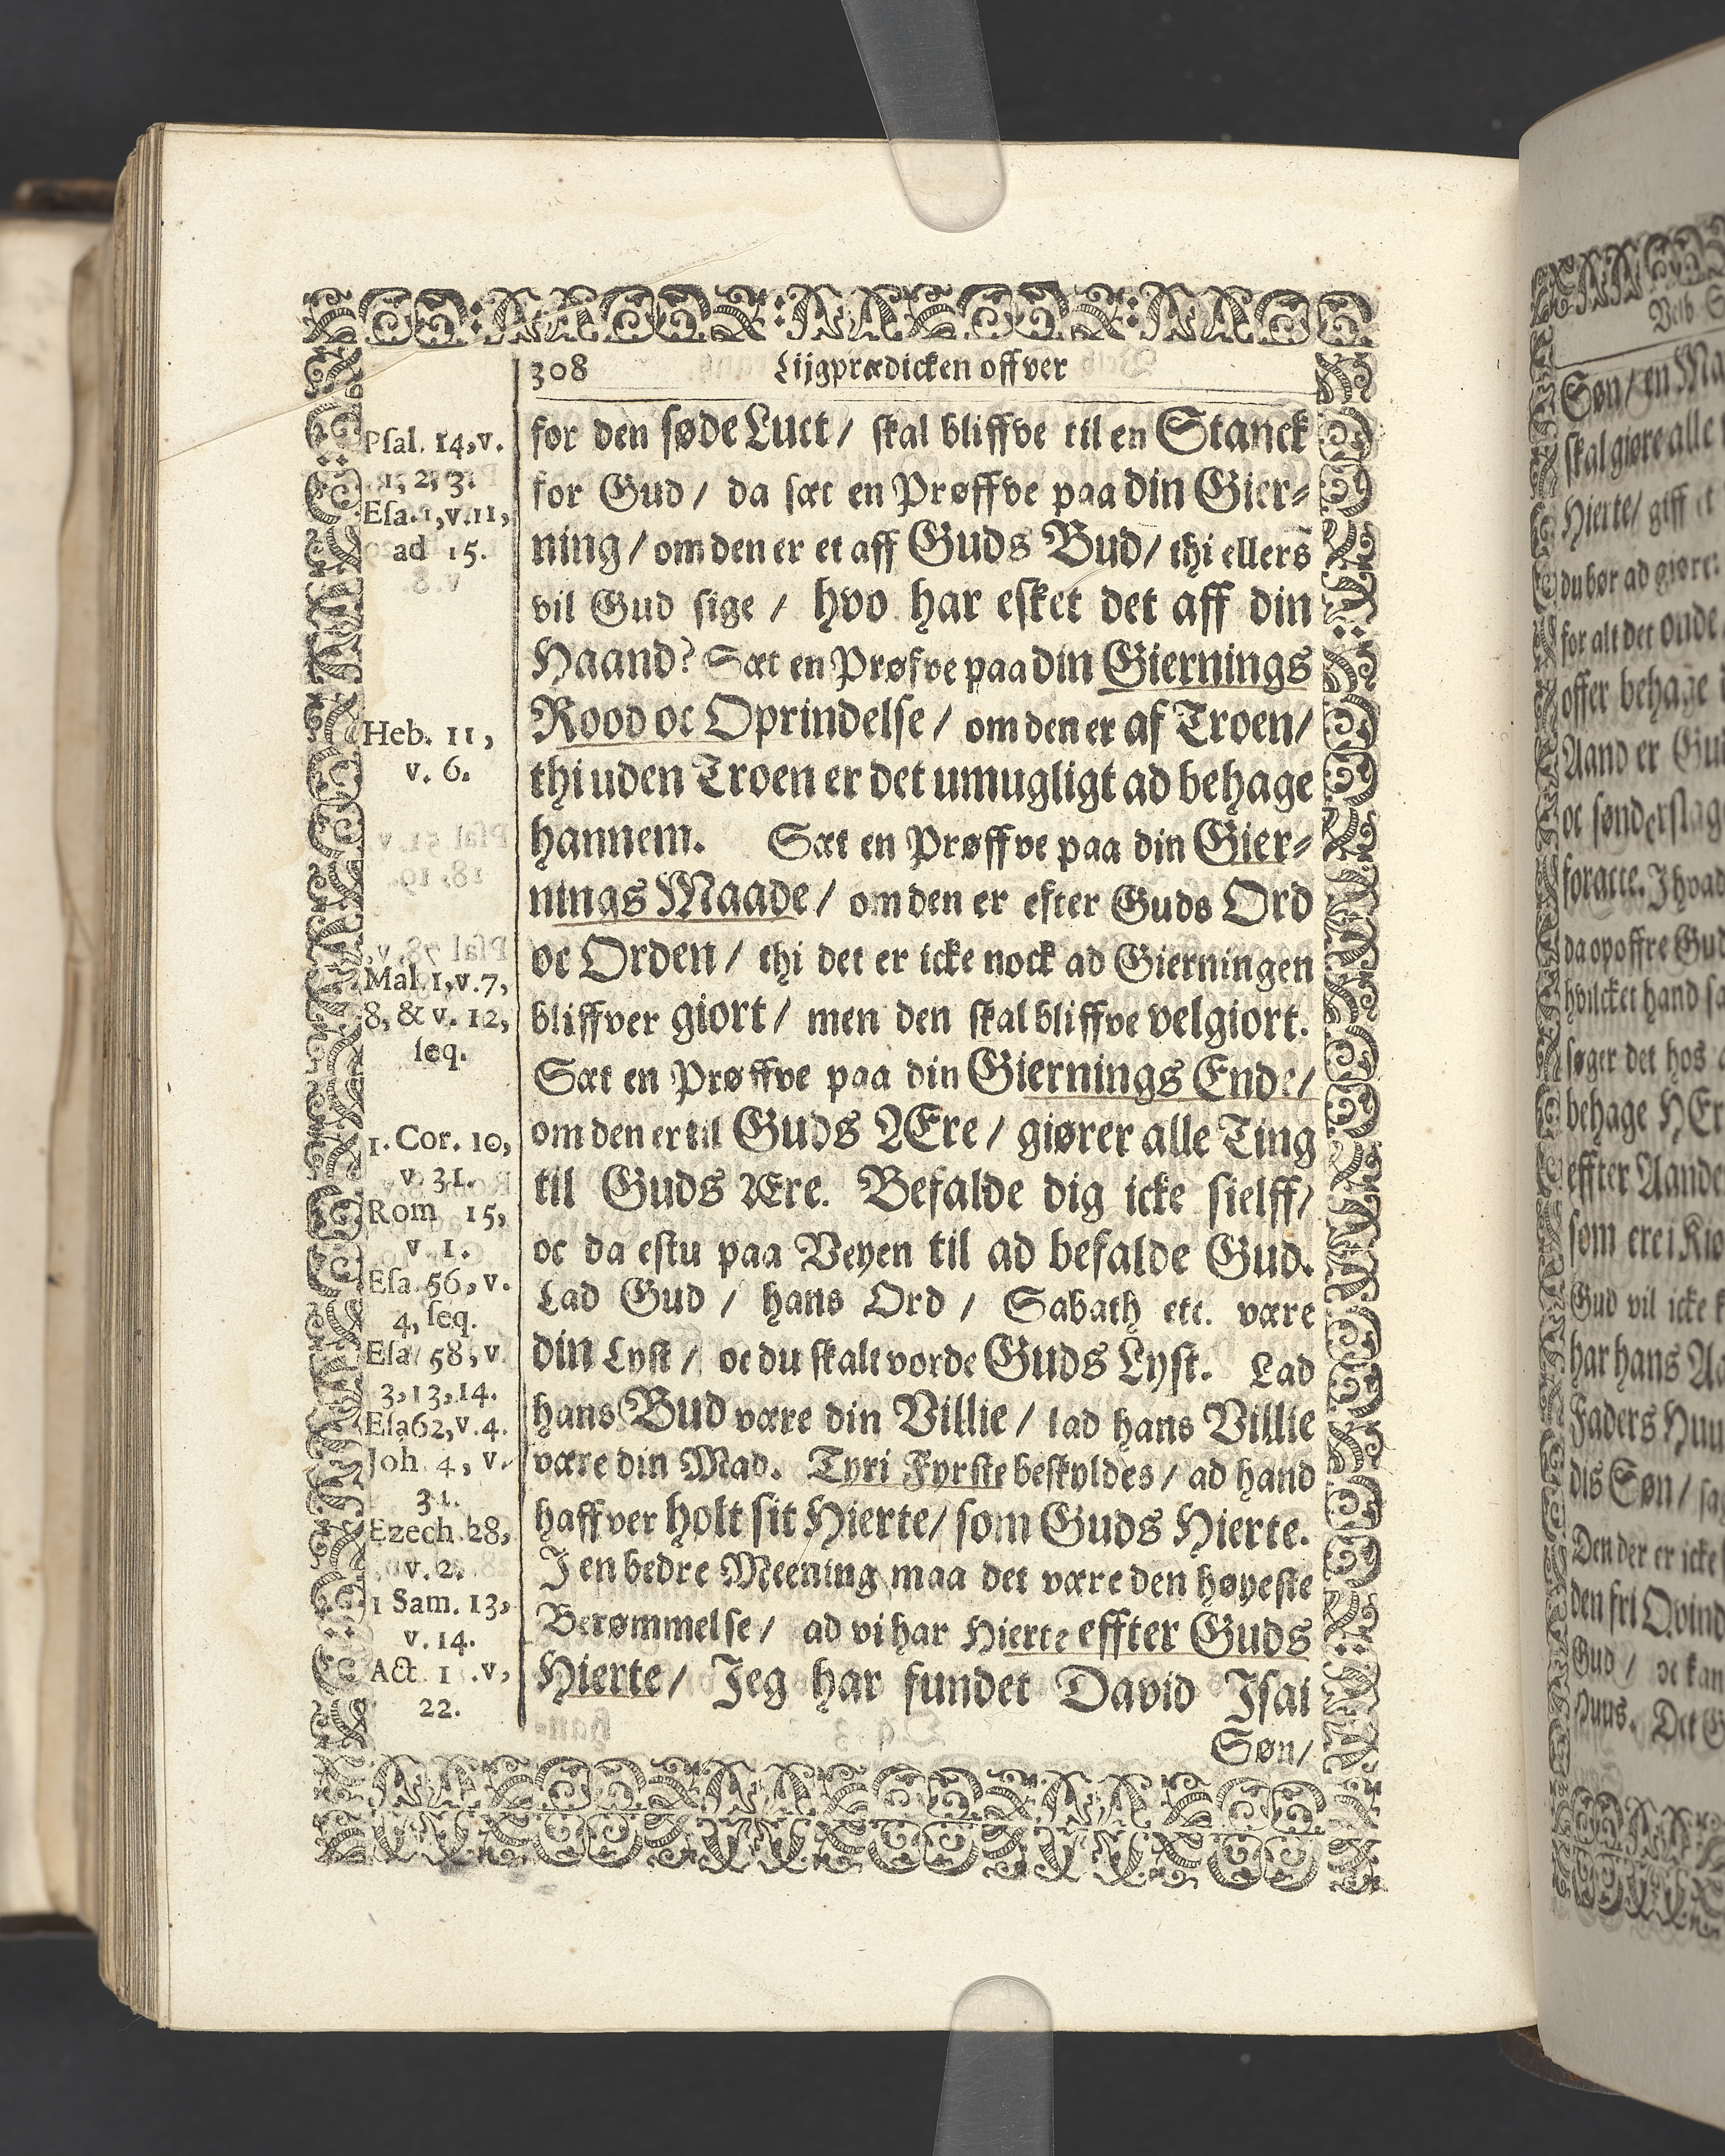 308 Lijgprædicken offver
for den søde Luct / skal bliffve til en Stanck
for Gud / da sæt en Prøffve paa din Gier-
ning / om den er et aff Guds Bud / thi ellers
vil Gud sige / hvo har esket det aff din
Haand? Sæt en Prøfve paa din Giernings
Rood oc Oprindelse / om den er af Troen /
thi uden Troen er det umugligt ad behage
hannem. Sæt en Prøffve paa din Gier-
nings Maade / om den er efter Guds Ord
oc Orden / thi det er icke nock ad Gierningen
bliffver giort / men den skal bliffve velgiort.
Sæt en Prøffve paa din Giernings Ende /
om den er til Guds Ære / giører alle Ting
til Guds Ære. Befalde dig icke sielff /
oc da estu paa Veyen til ad befalde Gud.
Lad Gud / hans Ord / Sabath etc. være
din Lyst / oc du skalt vorde Guds Lyst. Lad
hans Bud være din Villie / lad hans Villie
være din Mad. Tyri Fyrste beskyldes / ad hand
haffver holt sit Hierte / som Guds Hierte.
I en bedre Meening maa det være den høyeste
Berømmelse / ad vi har Hierte effter Guds
Hierte / Jeg har fundet David Isai
Søn /
Psal. 14, v.
1, 2, 3.
Esa. 1, v. 11,
ad 15.
Heb. 11,
v. 6.
Mal. 1, v. 7,
8, & v. 12,
seq.
1. Cor. 10,
v 31.
Rom 15,
v. 1.
Esa. 56, v.
4, seq.
Esa 58, v.
3, 13, 14.
Esa 62, v. 4.
Joh. 4, v.
34.
Ezech. 28,
v. 2.
1 Sam. 13,
v. 14.
Act. 1 . v,
22.